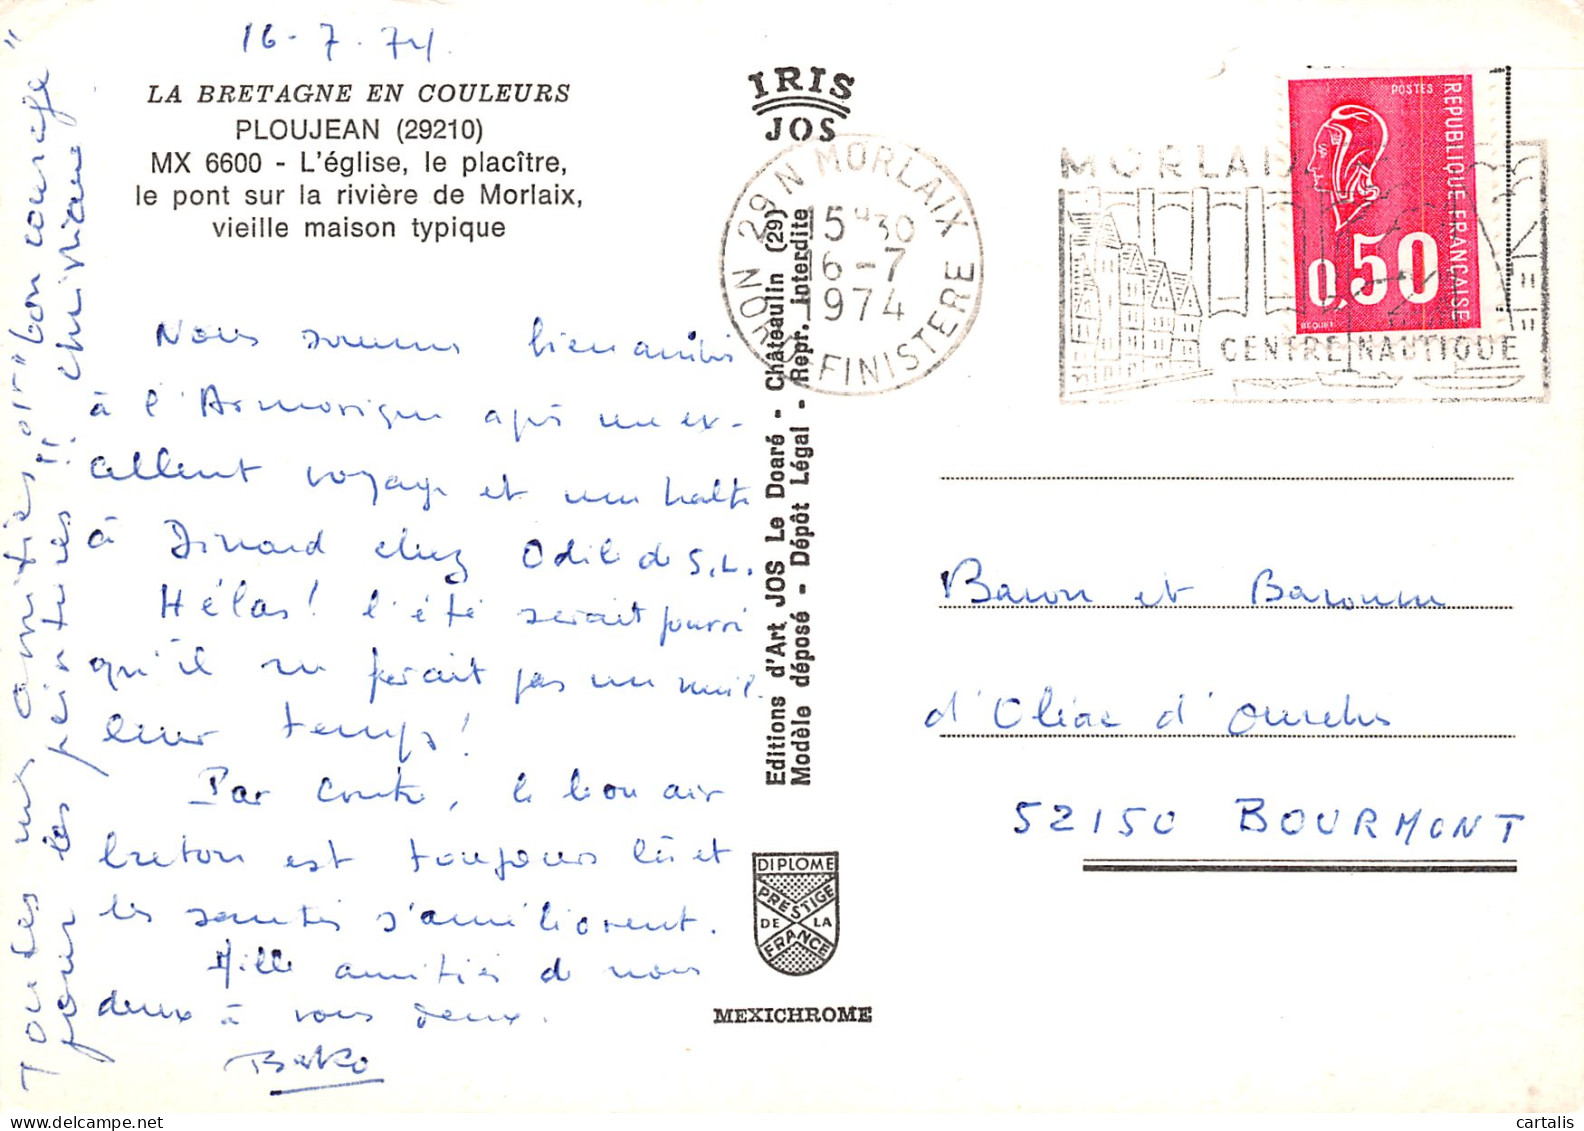 16-7.74.
LA BRETAGNE EN COULEURS
PLOUJEAN (29210)
MX 6600 - L'église, le placître,
le pont sur la rivière de Morlaix,
vieille maison typique
Nous sommes bien arrivés
à l'Armorique après une ex-
cellent voyage et une halte
à Dinard chez Odile de S.L.
Hélas! l'été serait pourri
qu'il ne ferait pas un meil-
leur temps!
Par contre, le bon air
breton est toujours là et
les santés s'améliorent.
Mille amitiés de nous
deux à vous deux.
Toutes mes amitiés, et "bon courage"
pour les peintures!! Christiane
IRIS
JOS
Editions d'Art JOS Le Doaré - Châteaulin (29)
Modèle déposé - Dépôt Légal - Repr. interdite
DIPLOME
PRESTIGE
DE LA
FRANCE
MEXICHROME
29 N MORLAIX
15H30
16-7
1974
NORD-FINISTERE
MORLAIX
CENTRE NAUTIQUE
POSTES
REPUBLIQUE FRANÇAISE
0,50
BEQUET
Baron et Baronne
d'Oliac d'
52150 BOURMONT
cartalis